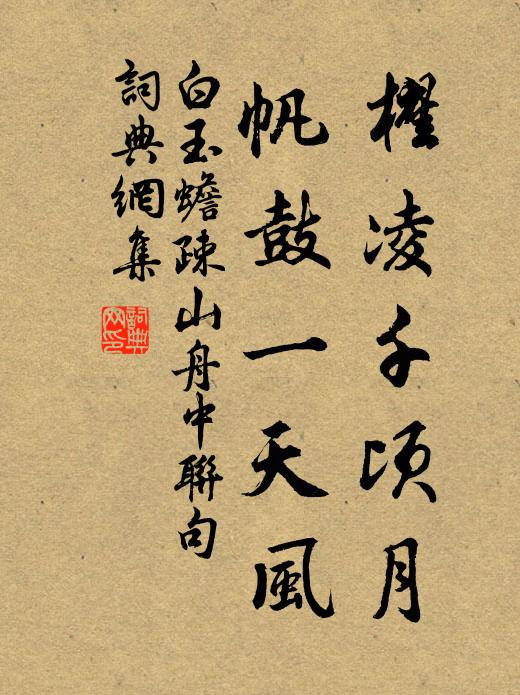 櫂凌千頃月
帆鼓一天風
白玉蟾疎山舟中聯句
詞典網集
詞典網印